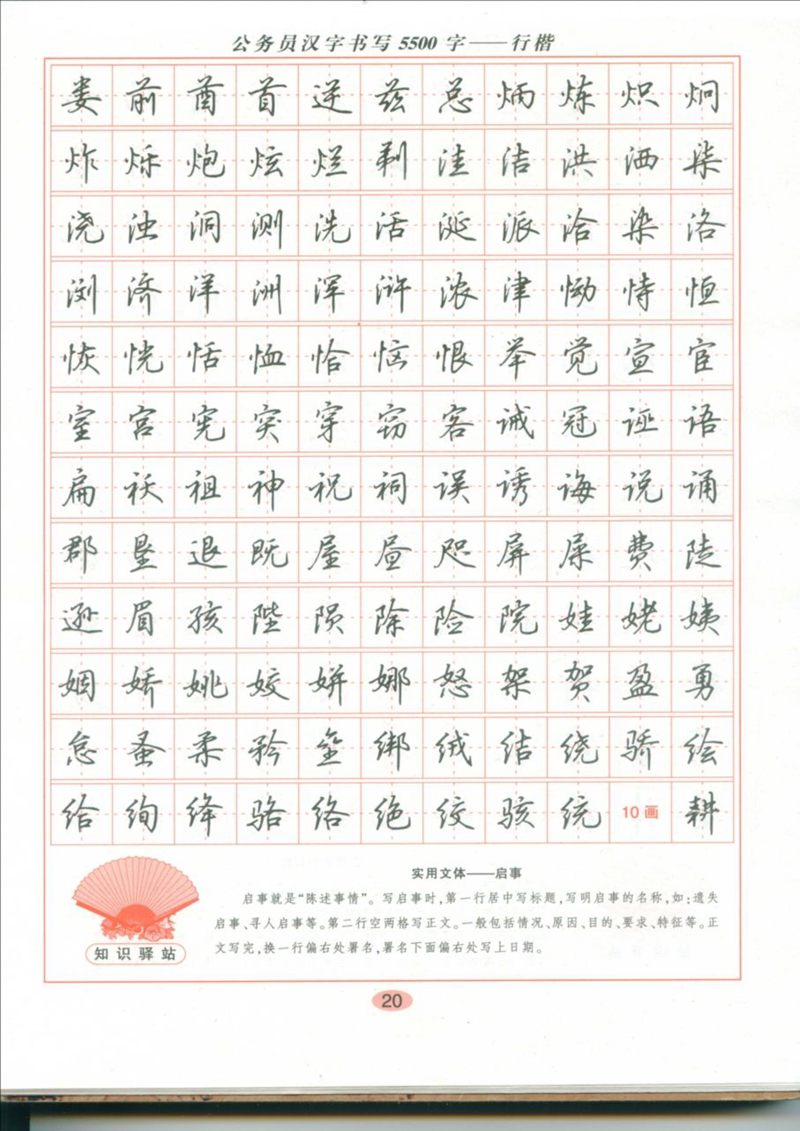 公务员汉字书写5500字——行楷
娄前酋首逆兹总炳炼炽炯
炸烁炮炫烂剃洼洁洪洒柒
浇浊洞测洗活涎派洽染洛
浏济洋洲浑浒浓津恸恃恒
恢恍恬恤恰恼恨举觉宣宦
室宫宪突穿窃客诫冠诬语
扁袄祖神祝祠误诱诲说诵
郡垦退既屋昼咫屏屎费陡
逊眉孩陛陨除险院娃姥姨
姻娇姚姣姘娜怒架贺盈勇
怠蚤柔矜垒绑绒结绕骄绘
给绚绛骆络绝绞骇统10画耕
实用文体——启事
启事就是“陈述事情”。写启事时,第一行居中写标题,写明启事的名称,如:遗失
启事、寻人启事等。第二行空两格写正文。一般包括情况、原因、目的、要求、特征等。正
文写完,换一行偏右处署名,署名下面偏右处写上日期。
知识驿站
20